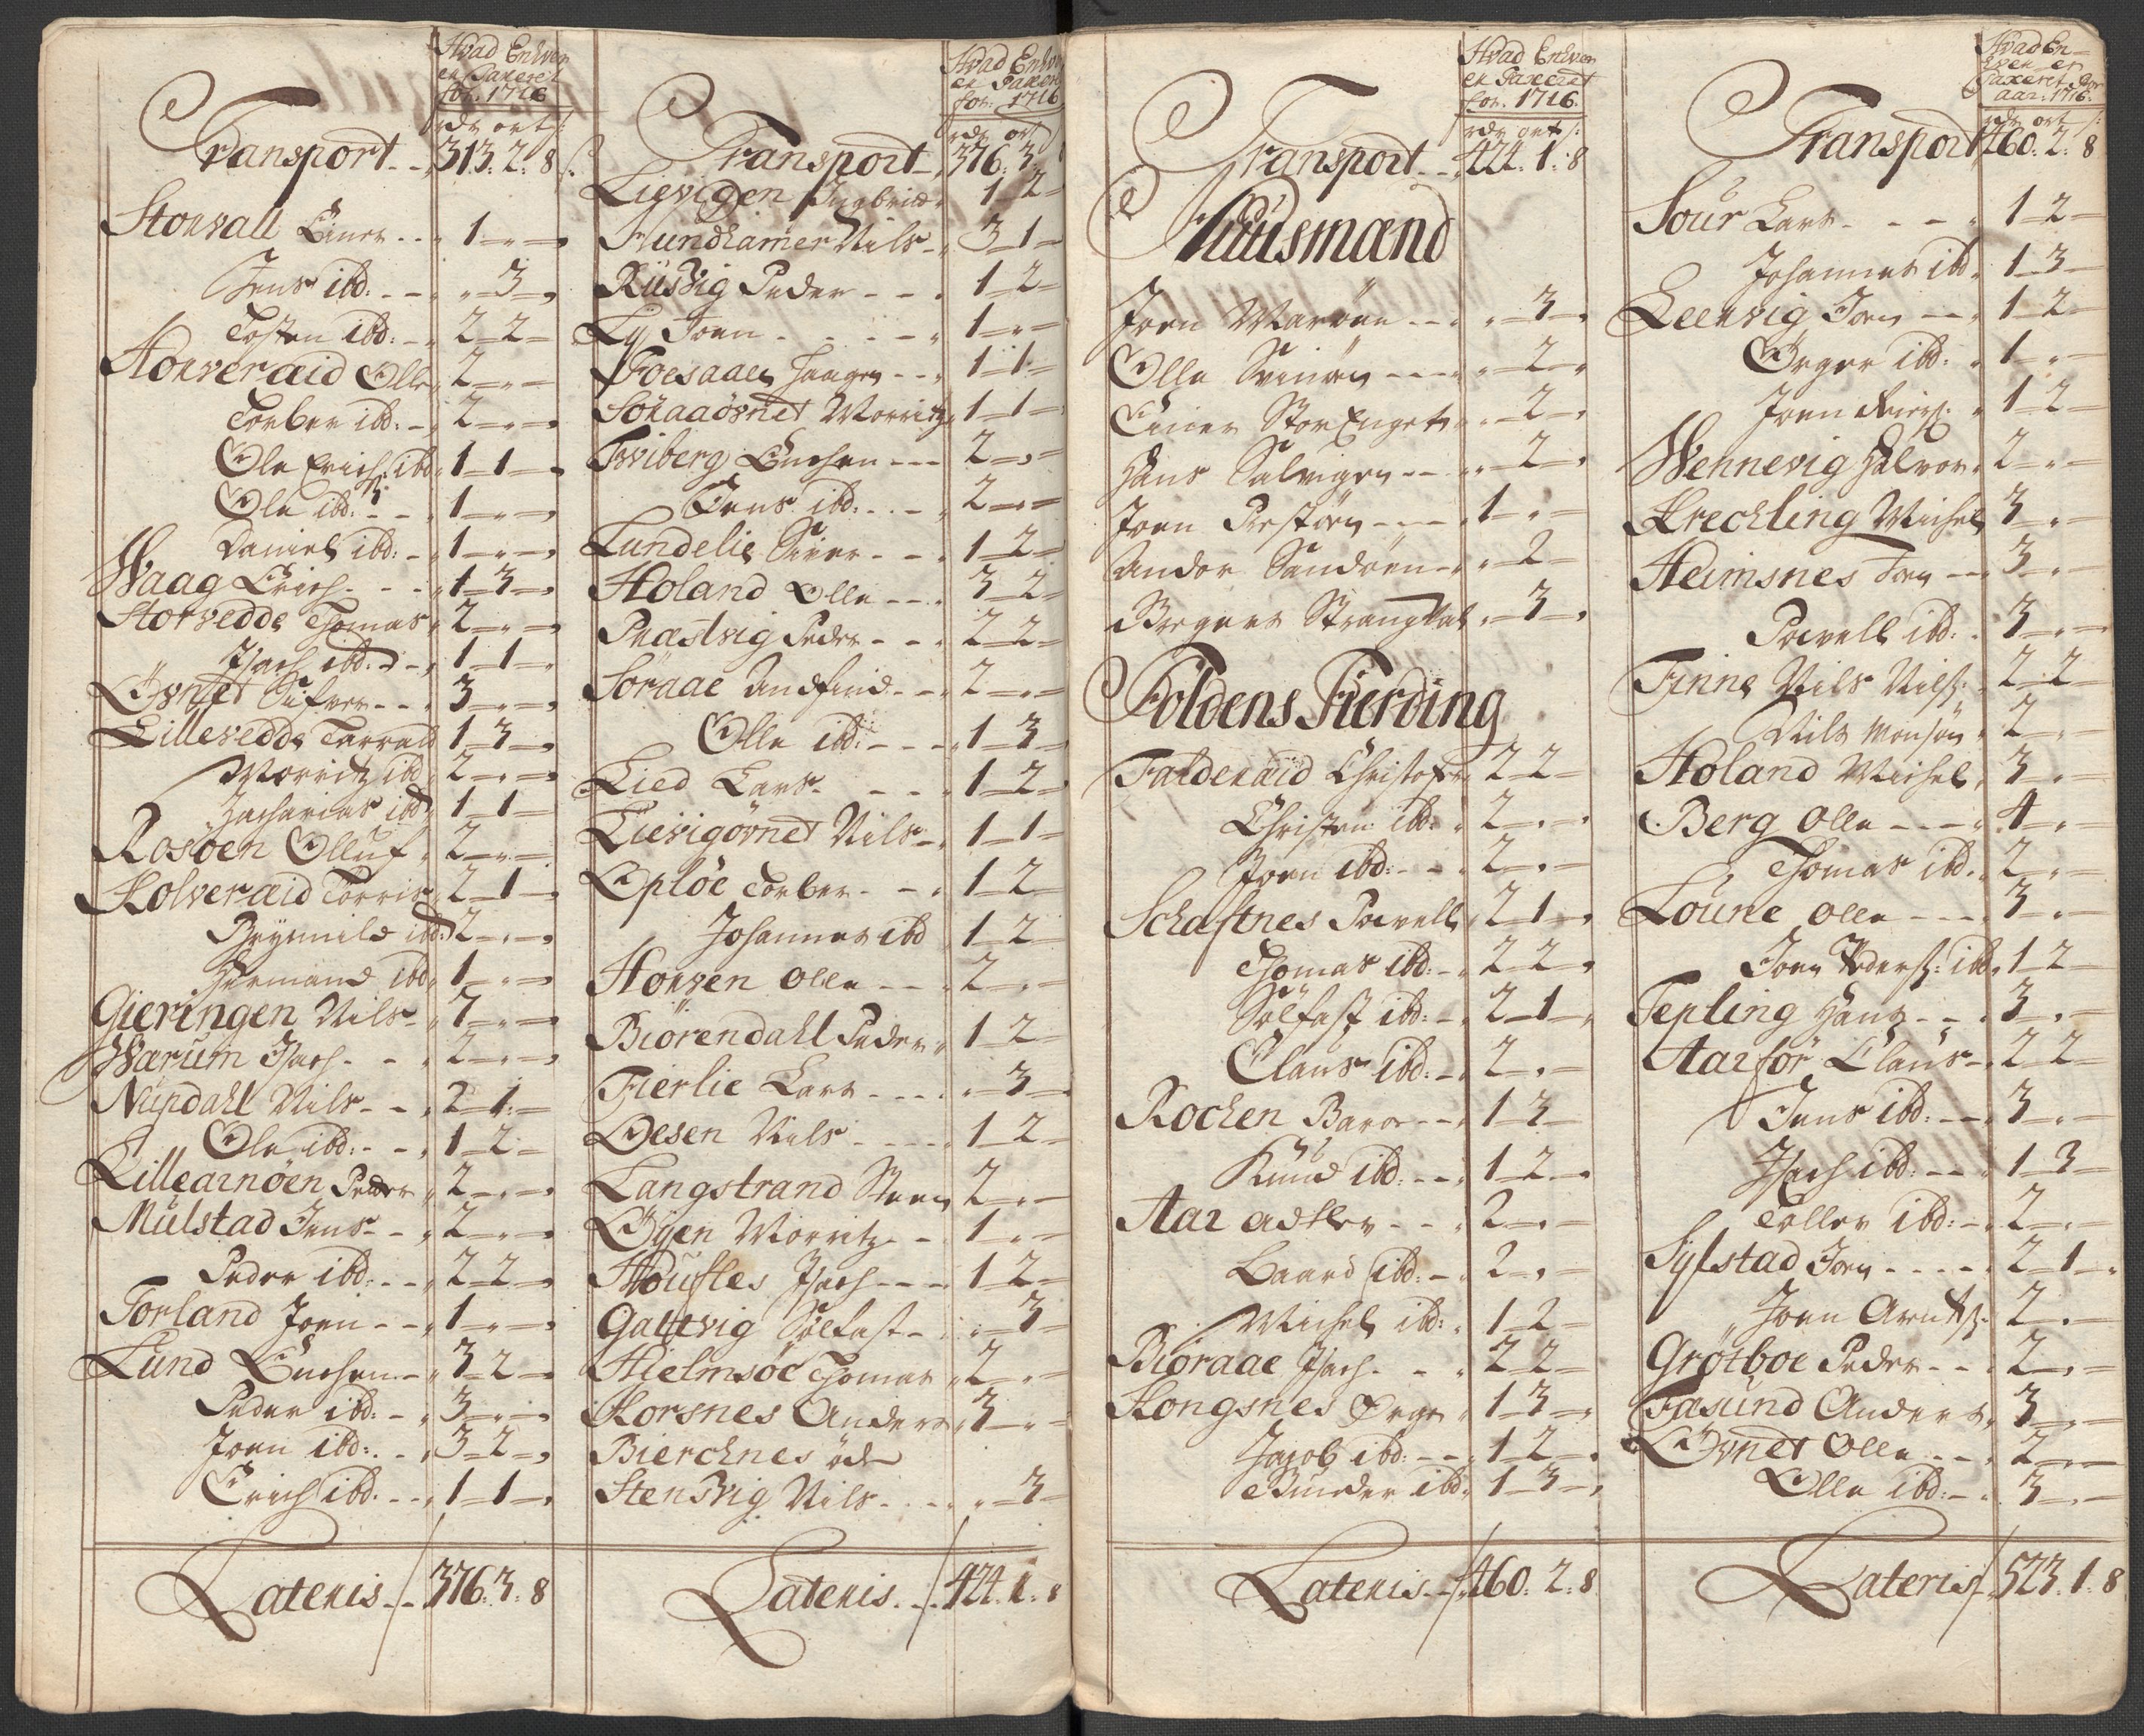 Hvad Enhver
er Taxeret
for. 1716
rdr ort ſ:
Transport - - 313. 2. 8
Storvall Einer - - 1 - " -
Jens ibd: - - " - 3 -
Tosten ibd: - 2 - 2 -
Honveræid Olle 2 - " -
Torber ibd: - 2 - " -
Ole Erichs: ibd 1 - 1 -
Ole ibd: - - 1 - " -
Daniel ibd: - 1 - " -
Waag Erich - - 1 - 3 -
Storvedde Thomas 2 - " -
Isach ibd: - 1 - 1 -
Öfnet Sifver - - 3 - " -
Lillevedde Tarrald 1 - 3 -
Morritz ibd 2 - " -
Zacharias ibd 1 - 1 -
Rosöen Olluf 2 - " -
Kolveræid Torris 2 - 1 -
Brynnild ibd: 2 - " -
Hermand ibd 1 - " -
Gieringen Nils - 7 - " -
Wærum Isach - - 2 - " -
Nupdahl Nils - - 2 - 1 -
Ole ibd: - - 1 - 2 -
Lillearnöen Peder 2 - " -
Mulstad Jens - - 2 - " -
Peder ibd: - - 2 - 2 -
Torland Joen - - 1 - " -
Lund Enchen - 3 - 2 -
Peder ibd: - 3 - " -
Joen ibd: - 3 - 2 -
Erich ibd: - - 1 - 1 -
Lateris - - 376. 3. 8
Hvad Enhver
er Taxeret
for: 1716
rdr ort
Transport - 376. 3.
Ligvigen Ingbrict 1 - 2 -
Hundhamer Nils - 3 - 1 -
Rusvig Peder - - 1 - 2 -
Ly Joen - - - - 1 - " -
Foesaaen Haagen - - 1 - 1 -
Sohaaövnet Morritz 1 - 1 -
Tviberg Enchen - - - 2 - " -
Jens ibd: - - 2 - " -
Lundelie Siver - - 1 - 2 -
Holand Olle - - 3 - 2 -
Præstvig Peder - - 2 - 2 -
Söraae Andfind - - 2 - " -
Olle ibd: - - - 1 - 3 -
Lied Lars - - - 1 - 2 -
Lievigövnet Nils - 1 - 1 -
Oplöe Torber - - 1 - 2
Johannes ibd 1 - 2 -
Horven Olle - - 2 - " -
Biörendahl Peder 1 - 2 -
Fierlie Lars - - - " - 3 -
Oesen Nils - - - 1 - 2 -
Langstrand Steen 2 - " -
Öyen Morritz - - 1 - " -
Moufles Isach - - - 1 - 2 -
Galtvig Sölfast - " - 3 -
Hielmsöe Thomas 2 - " -
Horsnes Anders 3 - " -
Bierchnes öde
Stensvig Nils - - - " - 3 -
Lateris - - 424. 1. 8
Hvad Enhver
er Taxeret
for. 1716.
rdr ort ſ:
Transport - - 424. 1. 8
Huusmænd
Joen Maröen - - " - 3 -
Olle Svinöen - - - " - 2 -
Einer StorEnget " - 2 -
Hans Salvigen - - " - 2 -
Joen Prestöen - - - 1 - " -
Andor Sandöen - " - 2 -
Bregert " - 3 -
Foldens Fierding
Faldenæid Christofer 2 - 2 -
Christen ibd: 2 - " -
Joen ibd: - - 2 - " -
Schaftnes Povell 2 - 1 -
Thomas ibd: - 2 - 2 -
Sölfast ibd: - 2 - 1 -
Claus ibd: - 2 - " -
Rochen Baror - - 1 - 3 -
Knud ibd: - - 1 - 2 -
Aar Adtler - - 2 - " -
Baard ibd: - 2 - " -
Michel ibd: 1 - 2 -
Bioraae Isach - - 2 - 2 -
Kongsnes Örger 1 - 3 -
Jacob ibd: - - 1 - 2 -
Bunder ibd 1 - 3 -
Lateris - - 460. 2. 8
Hvad En-
hver er
Taxeret for
aar. 1716.
rdr ort ſ:
Transport 460. 2. 8
Sour Lars - - - 1 - 2 -
Johannes ibd 1 - 3 -
Leervig Joen - - 1 - 2 -
Örger ibd: 1 - " -
Joen 1 - 2 -
Wennevig Halvor 2 - " -
Krechling Michel 3 - " -
Heimsnes Joen - - 3 - " -
Povell ibd: 3 - " -
Finne Nils Nilss: 2 - 2 -
Nils Monsön 2 - " -
Holand Michel 3 - " -
Berg Olle - - - 4 - " -
Thomas ibd. 2 - " -
Loune Olle - - - 3 - " -
Joen Pederss: ibd 1 - 2 -
Tepling Hans - - 3 - " -
Aarfor Claus - 2 - 2 -
Jens ibd: - - 3 - " -
Isach ibd: - - 1 - 3 -
Toller ibd: - 2 - " -
Sylstad Joen - - - - 2 - 1 -
Joen Arntss: 2 - " -
Gröthoe Peder - - 2 - " -
Fasund Anders 3 - " -
Övnet Olle - - - 2 - " -
Olle ibd: - 3 - " -
Lateris 523. 1. 8